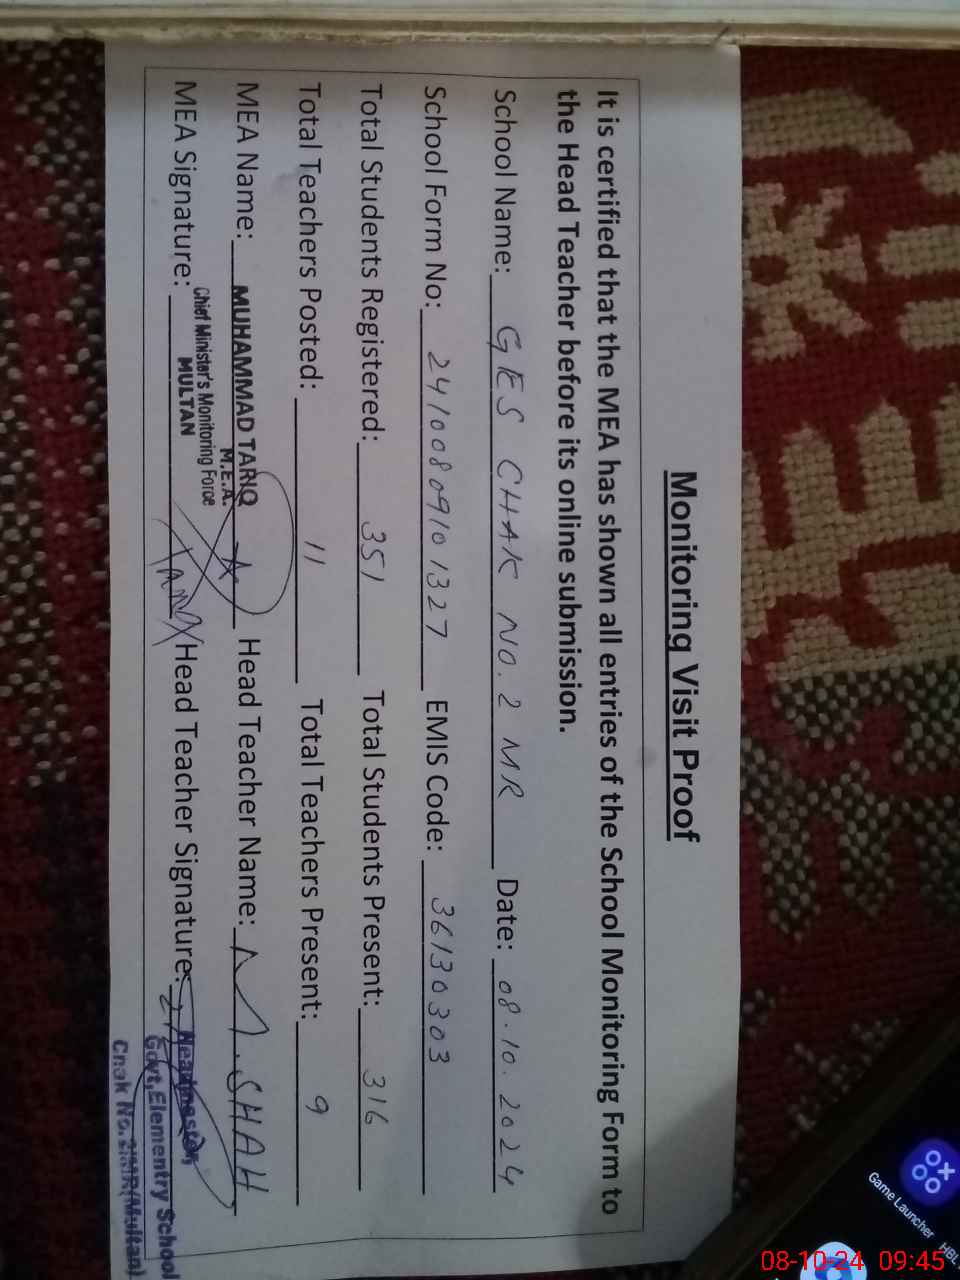 Monitoring Visit Proof
It is certified that the MEA has shown all entries of the School Monitoring Form to
the Head Teacher before its online submission.
School Name: GES CHAK NO. 2 MR Date: 08.10.2024
School Form No: 2410080910 1327 EMIS Code: 36130303
Total Students Registered: 351 Total Students Present: 316
Total Teachers Posted: 11 Total Teachers Present: 9
MEA Name: MUHAMMAD TARIQ Head Teacher Name: M.SHAH
M.E.A.
Chief Minister's Monitoring Force
MULTAN
MEA Signature: Head Teacher Signature:
Headmaster,
Govt,Elementry School
Chak No. 2MR(Multan)
Game Launcher
HBL
08-10-24 09:45